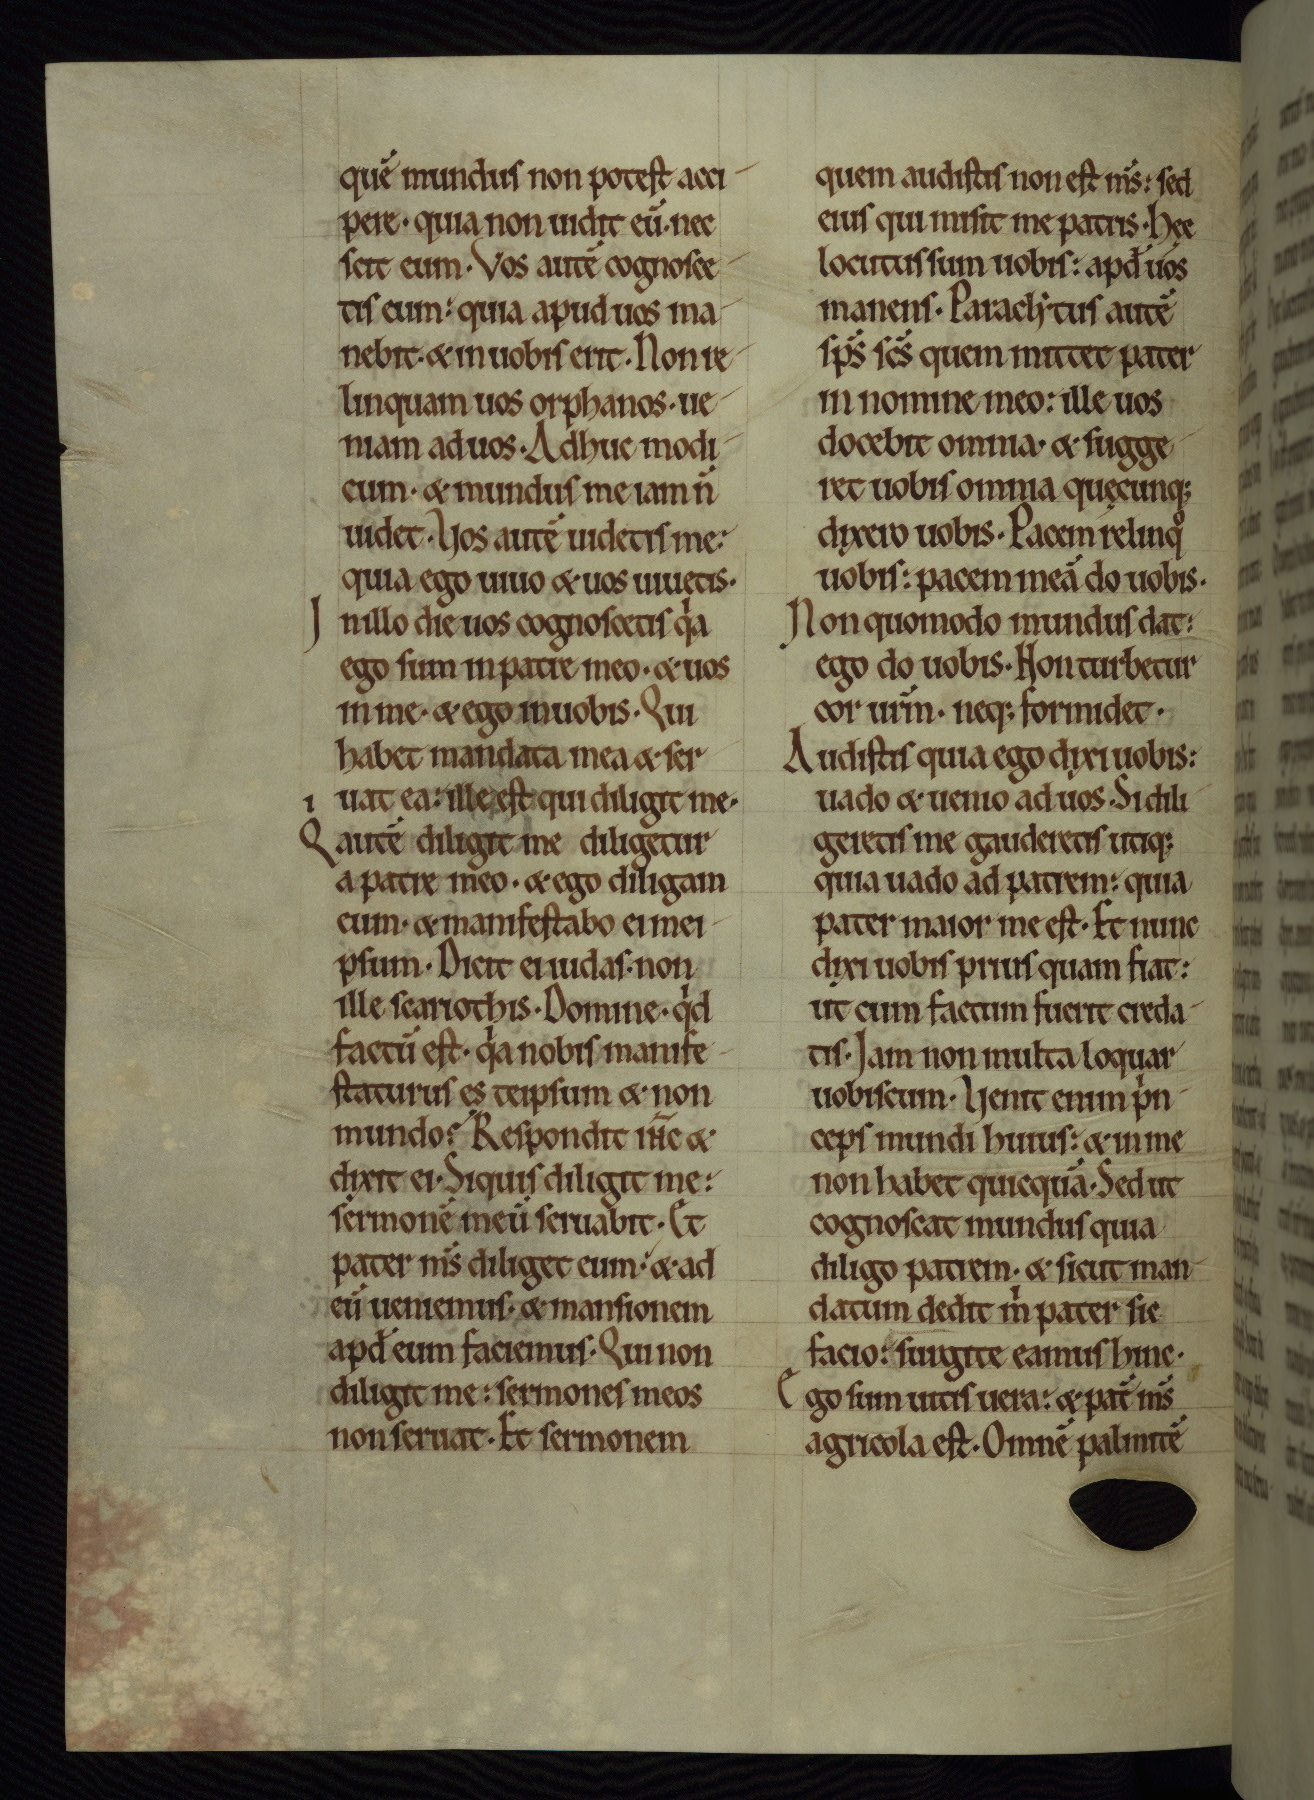 quē mundus non potest acci-
pere· quia non uidit eū· nec
scit eum· Vos autē cognosce-
tis eum: quia apud uos ma-
nebit· & in uobis erit· Non re-
linquam uos orphanos· ue-
niam ad uos· Adhuc modi-
cum· & mundus me iam n̄
uidet· Vos autē uidetis me:
quia ego uiuo & uos uiuetis·
In illo die uos cognoscetis qia
ego sum in patre meo· & uos
in me· & ego in uobis· Qui
habet mandata mea & ser-
uat ea: ille est qui diligit me·
Qi autē diligit me diligetur
a patre meo· & ego diligam
eum· & manifestabo ei mei-
psum· Dicit ei iudas· non
ille scariothis· Domine· qid
factū est· qia nobis manife-
staturus es teipsum & non
mundo? Respondit ih̄c &
dixit ei· Siquis diligit me:
sermonē meū seruabit· Et
pater m̄s diliget eum: & ad
eū ueniemus· & mansionem
apđ eum faciemus· Qui non
diligit me: sermones meos
non seruat· Et sermonem
quem audistis non est m̄s: sed
eius qui misit me patris· Hęc
locutus sum uobis: apđ uos
manens· Paraclẏtus autē
sp̄s sc̄s quem mittet pater
in nomine meo: ille uos
docebit omnia· & sugge-
ret uobis omnia quęcunq;
dixero uobis· Pacem relinqo
uobis: pacem meā do uobis·
Non quomodo mundus dat:
ego do uobis· Non turbetur
cor ur̄m· neq; formidet·
Audistis quia ego dixi uobis:
uado & uenio ad uos· Si dili-
geretis me gauderetis utiq;
quia uado ad patrem: quia
pater maior me est· Et nunc
dixi uobis prius quam fiat:
ut cum factum fuerit creda-
tis· Iam non multa loquar
uobiscum· Venit enim pin-
ceps mundi huius: & in me
non habet quicquā· Sed ut
cognoscat mundus quia
diligo patrem· & sicut man-
datum dedit mi pater sic
facio: surgite eamus hinc·
Ego sum uitis uera: & pat̄ m̄s
agricola est· Omnē palmitē